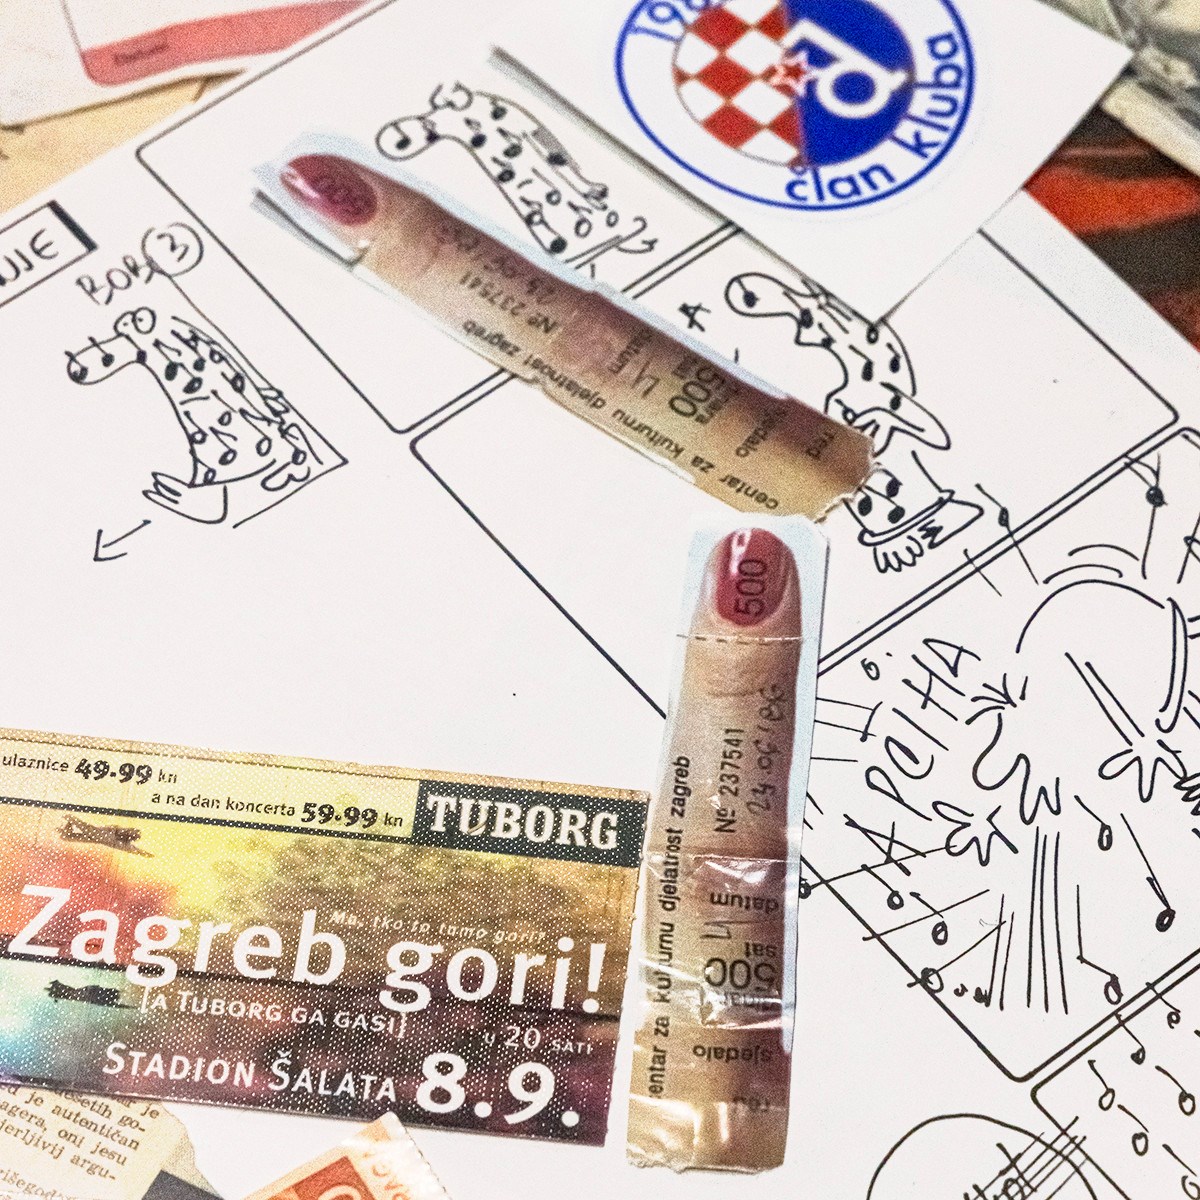 198
član kluba
BOB 3
500
Nº 237541
centar za kulturnu djelatnost zagreb
datum
sat
500
dinar
sjedalo
red
A
500
Nº 237541
24.05.'86
centar za kulturnu djelatnost zagreb
datum
sat
500
dinar
sjedalo
red
ulaznice 49.99 kn
a na dan koncerta 59.99 kn
TUBORG
Ma, tko to tamo gori?
Zagreb gori!
[A TUBORG GA GASI]
u 20 SATI
STADION ŠALATA 8.9.
je autentičan
oni jesu
argu-